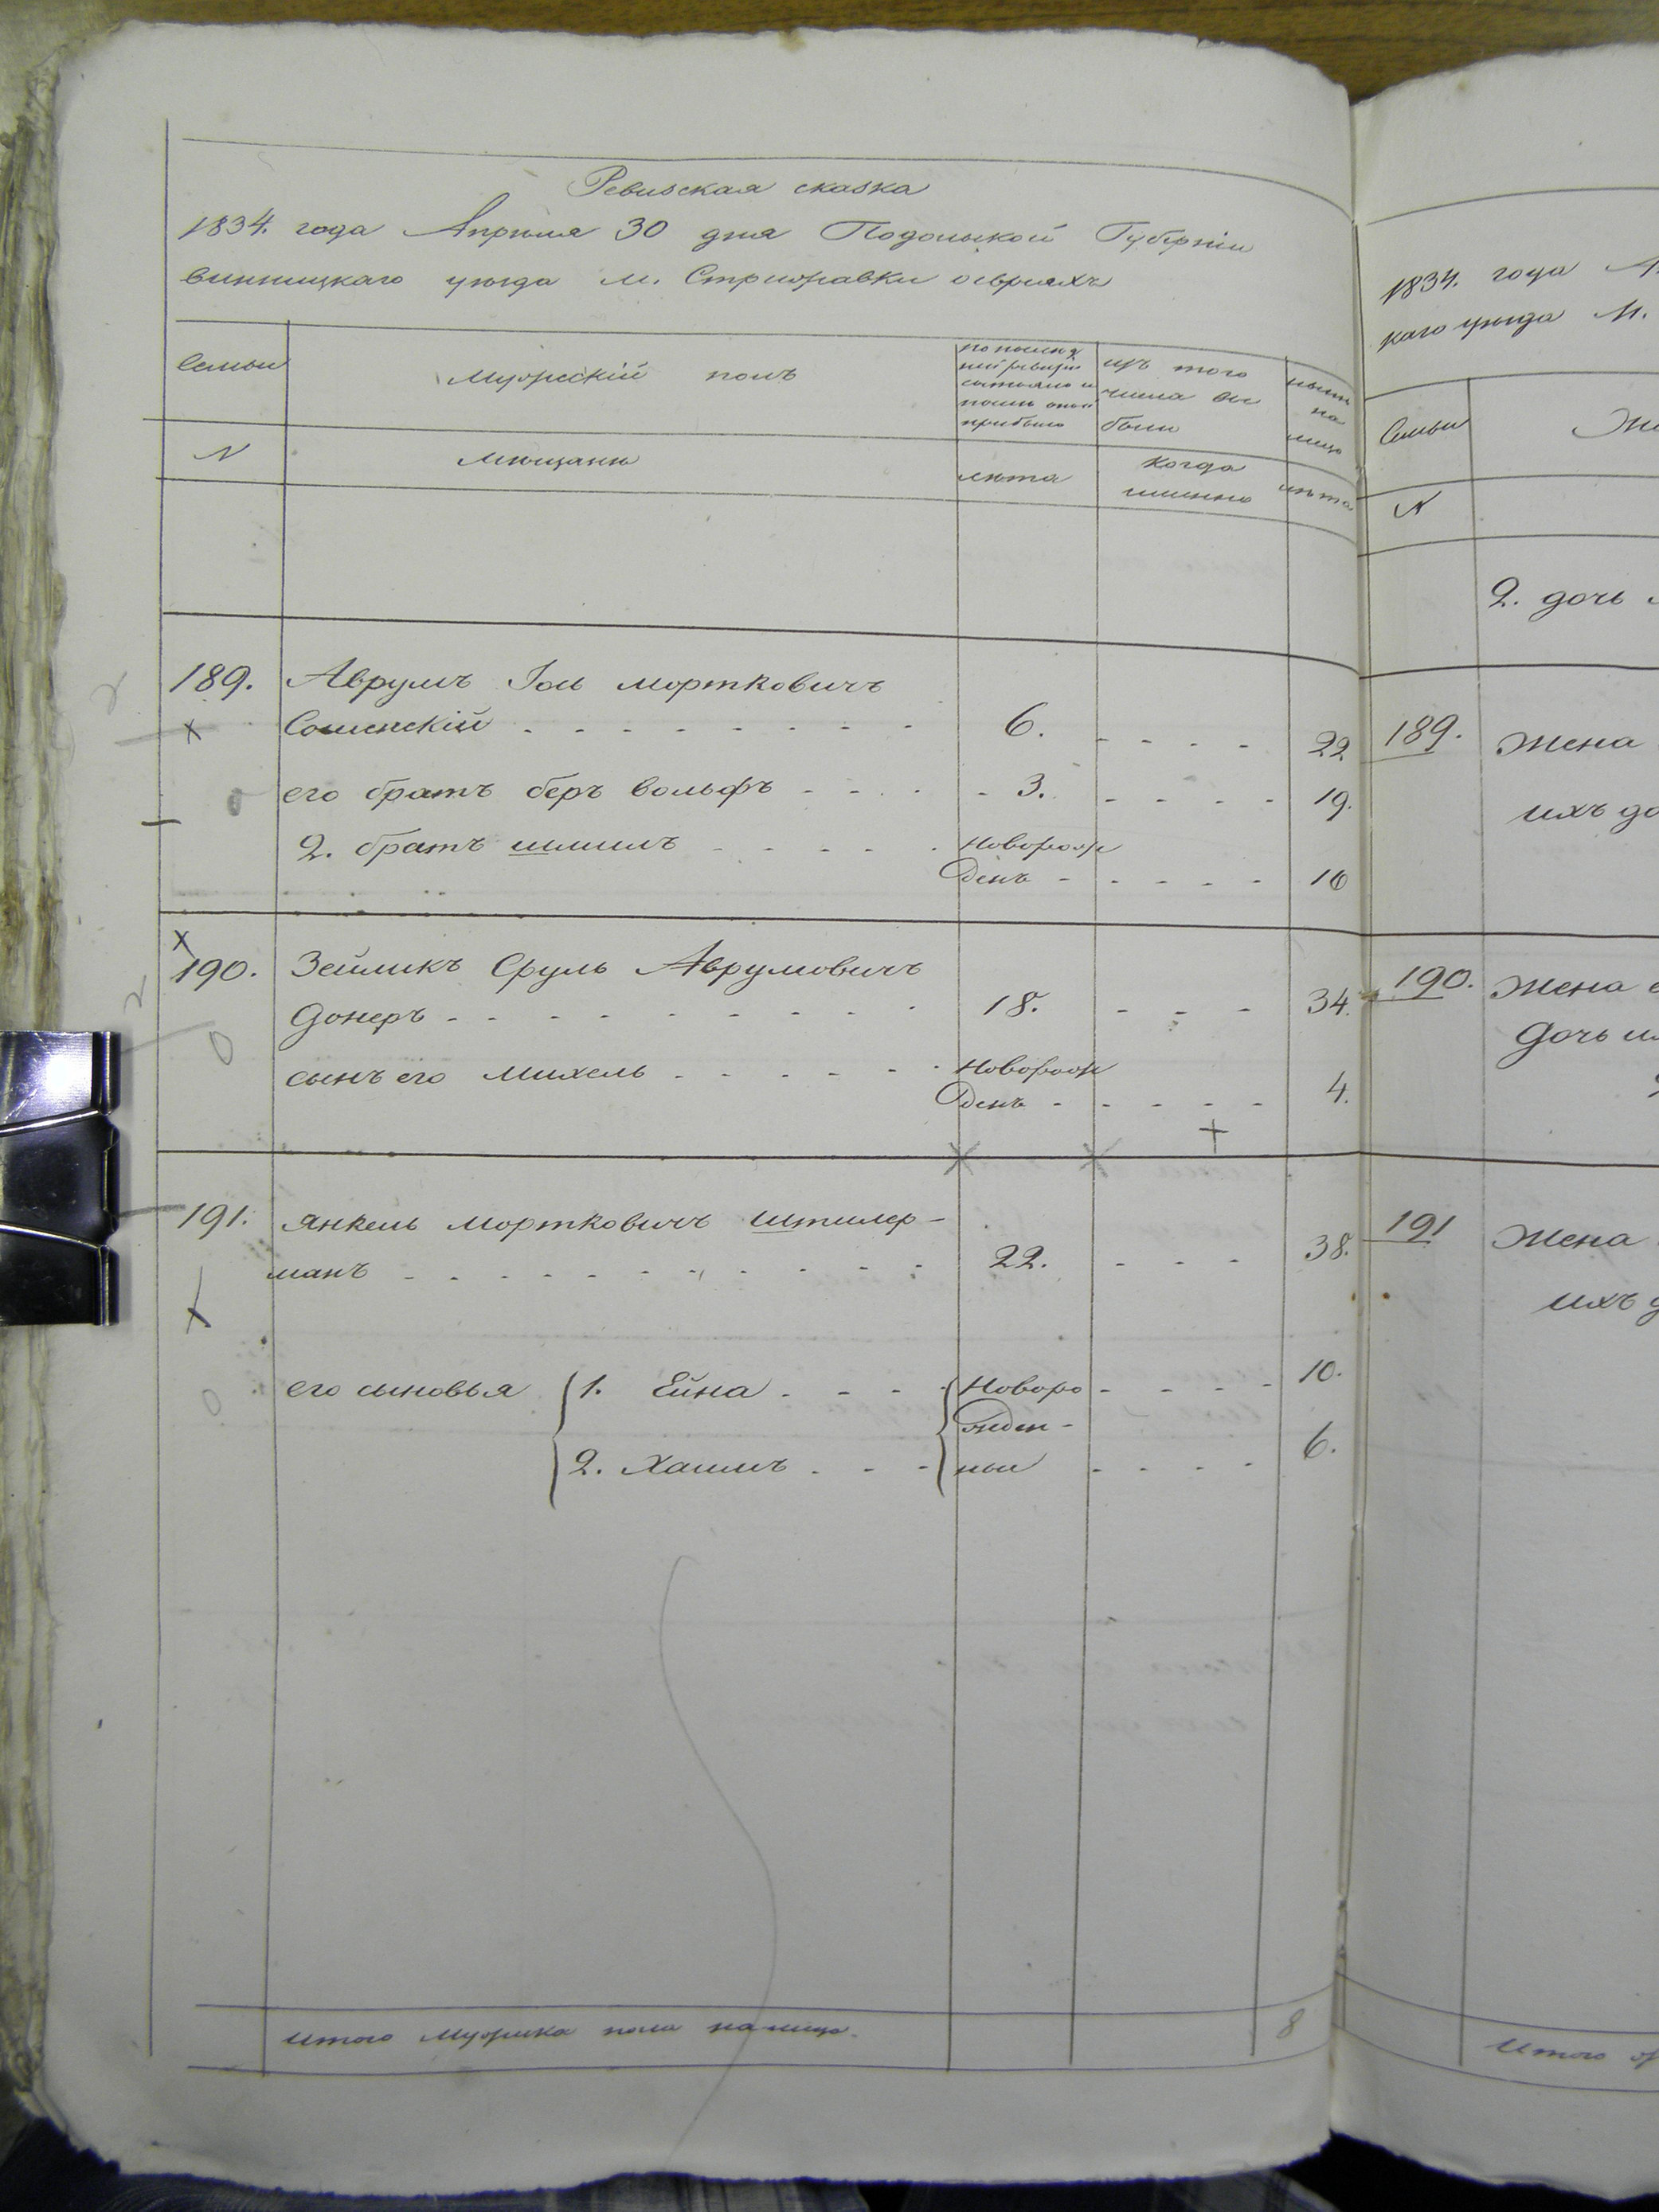 Ревизская сказка
1834. года Апреля 30 дня Подольской Губерніи
винницкаго уезда м. Стрижавки о евреяхъ
Семьи
Мужескій полъ
по послед
ней ревизіи
состояло и
после оной
прибыло
изъ того
числа вы
были
ныне
на
лицо
N
мещане
лета
когда
именно
лета
189. Аврумъ Іоль мортковичъ
Сошенскій - - - - - - - - 6. - - - - 22
его братъ беръ вольфъ - - - - 3. - - - - 19.
2. братъ шлимъ - - - - - новорож
денъ - - - - - 16
190. Зейликъ Сруль Аврумовичъ
Донеръ - - - - - - - - - 18. - - - 34.
сынъ его михель - - - - - - новорож
денъ - - - - - 4.
191. янкель мортковичъ штилер-
манъ - - - - - - - - - - 22. - - - 38.
его сыновья 1. Ейна - - - - новоро - - - - 10.
жден-
2. Хаимъ - - - ные - - - - 6.
итого мужеска пола на лицо. 8
1834. года А
каго уезда м.
Семьи
N
Же
2. дочь
189. жена
ихъ до
190. жена е
дочь их
191 жена
ихъ д
Итого